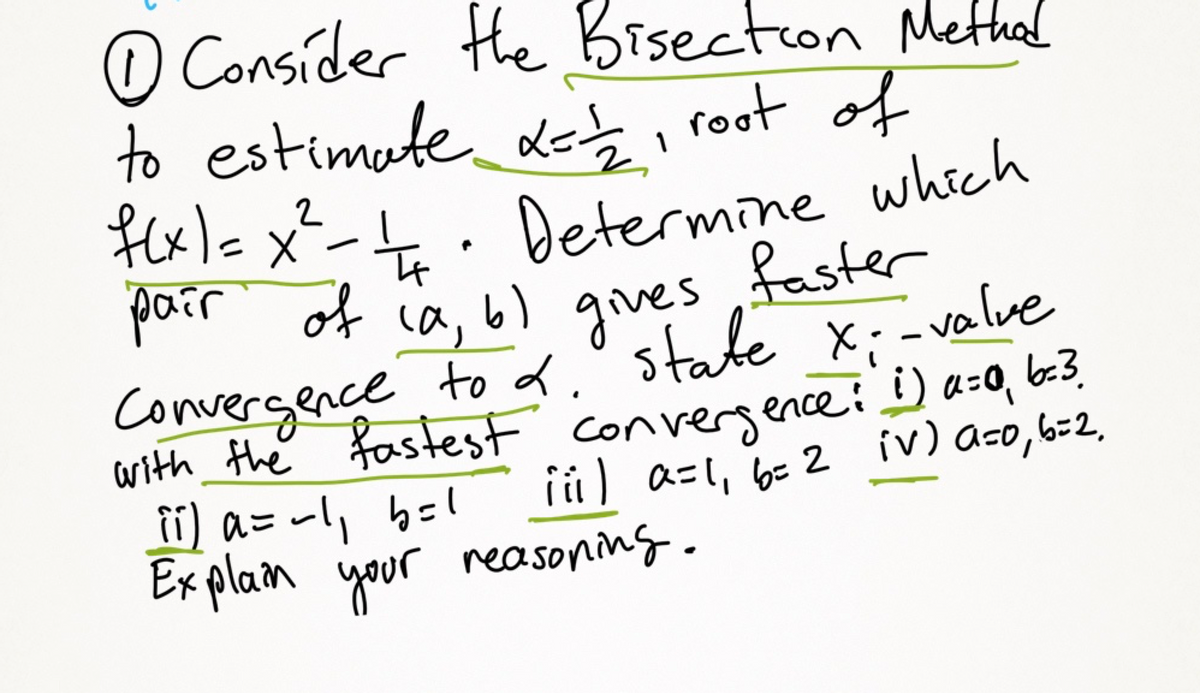 ① Consider the Bisection Method
to estimate α=1/2, root of
f(x)= x² - 1/4 . Determine which
pair of (a, b) gives faster
convergence to α. state xᵢ -value
with the fastest convergence: i) a=0, b=3.
ii) a= -1, b=1 iii) a=1, b=2 iv) a=0, b=2.
Explain your reasoning.